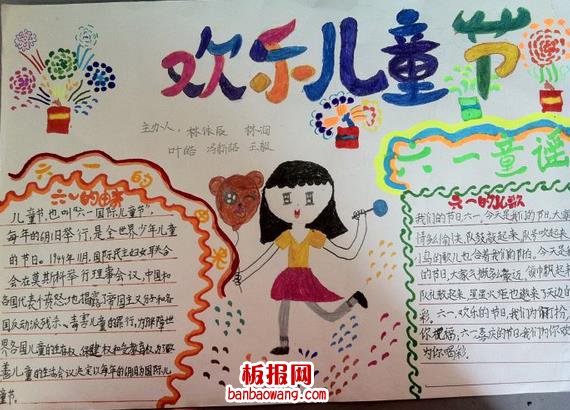 欢乐儿童节
主办人：林依辰 林润
叶皓 冯新皓 王毅
六一的由来
六一的由来
儿童节,也叫"六一国际儿童节",
每年的6月1日举行,是全世界少年儿童
的节日。1949年11月,国际民主妇女联合会
会在莫斯科举行理事会议,中国和
各国代表愤怒地揭露了帝国主义分子和各
国反动派残杀、毒害儿童的罪行,为了保障世
界各国儿童的生存权、保健权和受教育权,为了改
善儿童的生活会议决定以每年的6月1日为国际儿
童节。
六一童谣
六一的儿歌
我们的节日六一,今天是我们的节儿,大家
情多么愉快,队鼓敲起来,队号吹起来,
小鸟的歌儿,也合着我们的节拍,今天
的节日,大家兴致多豪迈,领巾飘起来,
队礼敬起来,星星火炬也
六一、欢乐的节日我们为你打扮,
你祝福;六一喜庆的节日我们为你欢
为你喝彩。
板报网
banbaowang.com